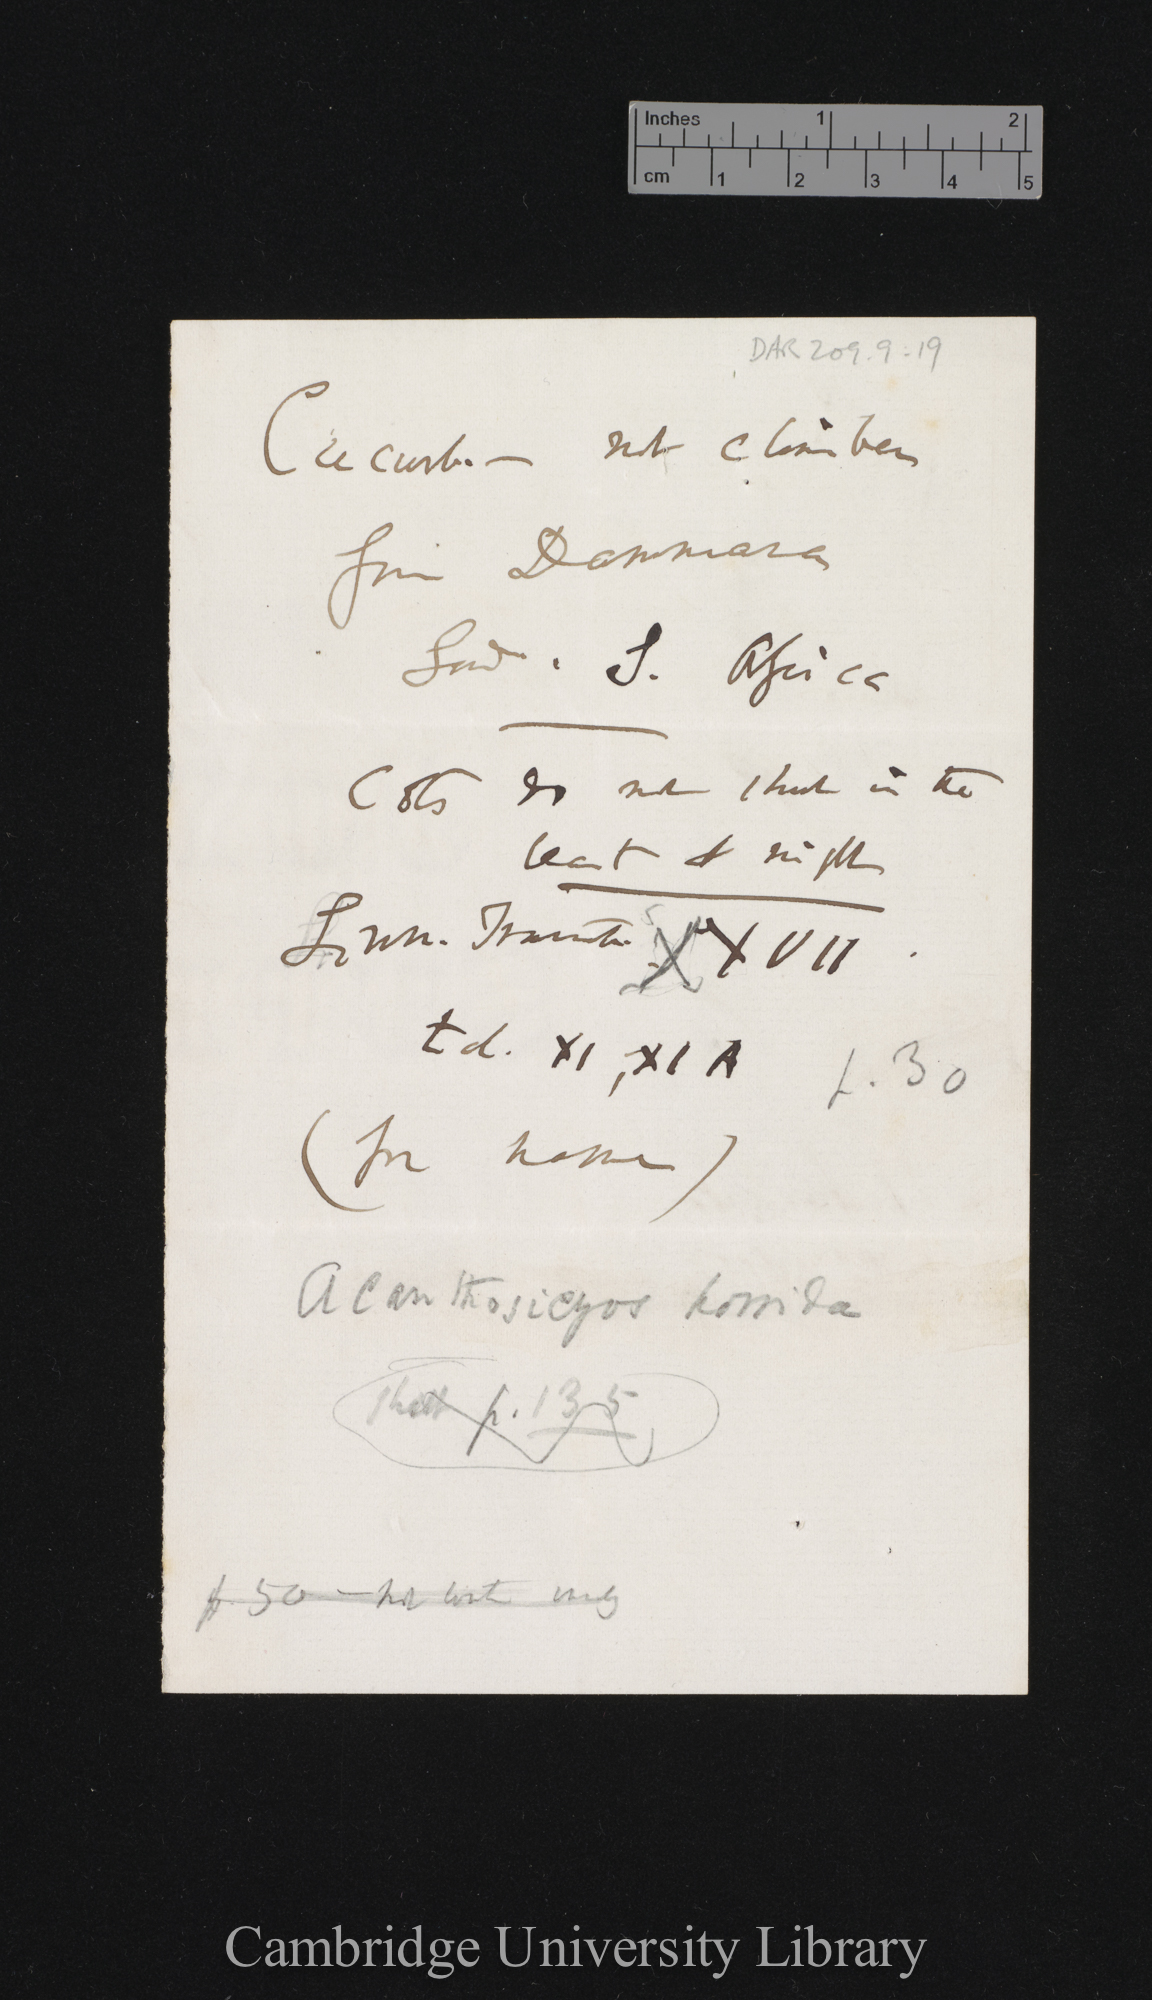 Inches 1 2
cm 1 2 3 4 5
DAR 209.9:19
Cucurb. — not climber
from Dammara
Land. S. Africa
Cots do not shut in the
least at night
Linn. Transacts. XXVII.
td. XI, XI A p. 30
(for name)
Acanthosicyos horrida
p. 135
p. 50 — not
Cambridge University Library